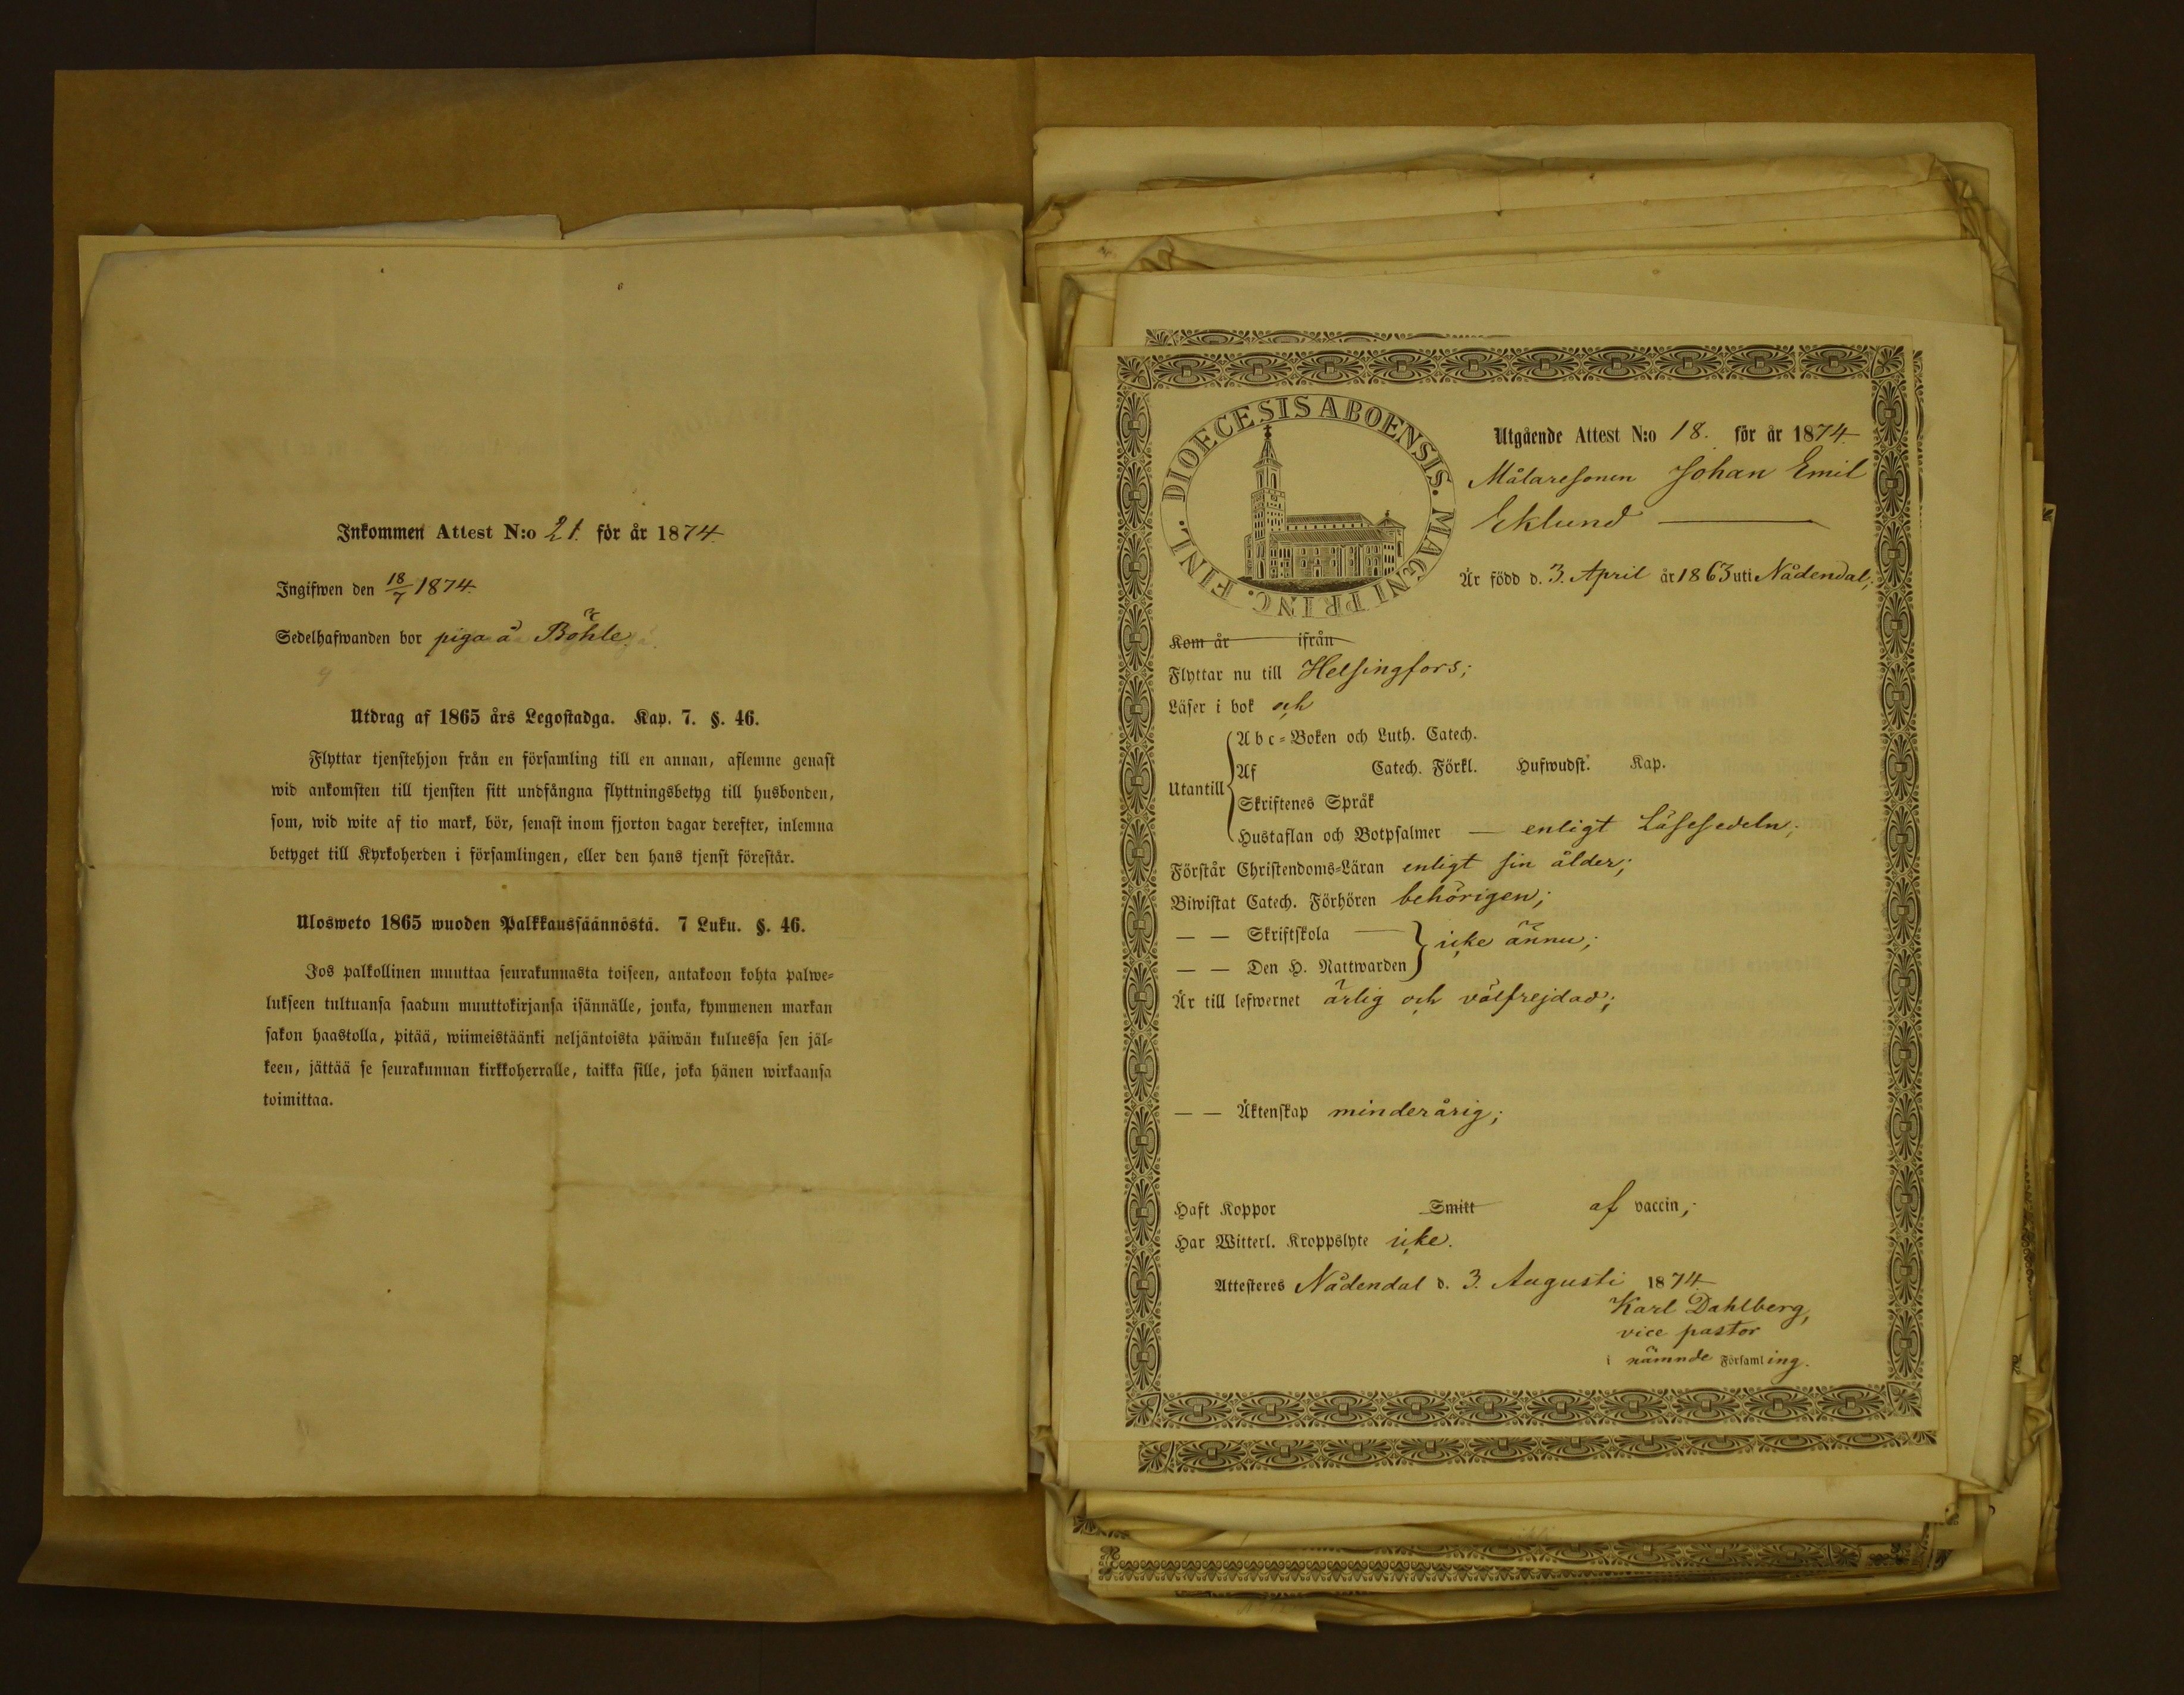 Inkommen Attest N:o 21. för år 1874.
Ingifwen den 18/7 1874.
Sedelhafwanden bor piga å Böhle.
Utdrag af 1865 års Legostadga. Kap. 7. §. 46.
Flyttar tjenstehjon från en församling till en annan, aflemne genast
wid ankomsten till tjensten sitt undfångna flyttningsbetyg till husbonden,
som, wid wite af tio mark, bör, senast inom fjorton dagar derefter, inlemna
betyget till Kyrkoherden i församlingen, eller den hans tjenst förestår.
Ulosweto 1865 wuoden Palkkaussäännöstä. 7 Luku. §. 46.
Jos palkollinen muuttaa seurakunnasta toiseen, antakoon kohta palwe=
lukseen tultuansa saadun muuttokirjansa isännälle, jonka, kymmenen markan
sakon haastolla, pitää, wiimeistäänki neljäntoista päiwän kuluessa sen jäl=
keen, jättää se seurakunnan kirkkoherralle, taikka sille, joka hänen wirkaansa
toimittaa.
DIOECESIS ABOENSIS. MAGNI PRINC. FINL.
Utgående Attest N:o 18. för år 1874.
Målaresonen Johan Emil
Eklund
Är född d. 3. April år 1863 uti Nådendal;
Kom år ifrån
Flyttar nu till Helsingfors;
Läser i bok och
Utantill
Abc=Boken och Luth. Catech.
Af Catech. Förkl. Hufwudst. Kap.
Skriftenes Språk
Hustaflan och Botpsalmer — enligt Läsesedeln;
Förstår Christendoms=Läran enligt sin ålder;
Biwistat Catech. Förhören behörigen;
— — Skriftskola —
— — Den H. Nattwarden } icke ännu;
Är till lefwernet ärlig och välfrejdad;
— — Äktenskap minderårig;
Haft Koppor Smitt af vaccin;
Har Witterl. Kroppslyte icke.
Attesteres Nådendal d. 3. Augusti 1874
Karl Dahlberg,
vice pastor
i nämnde Församling.